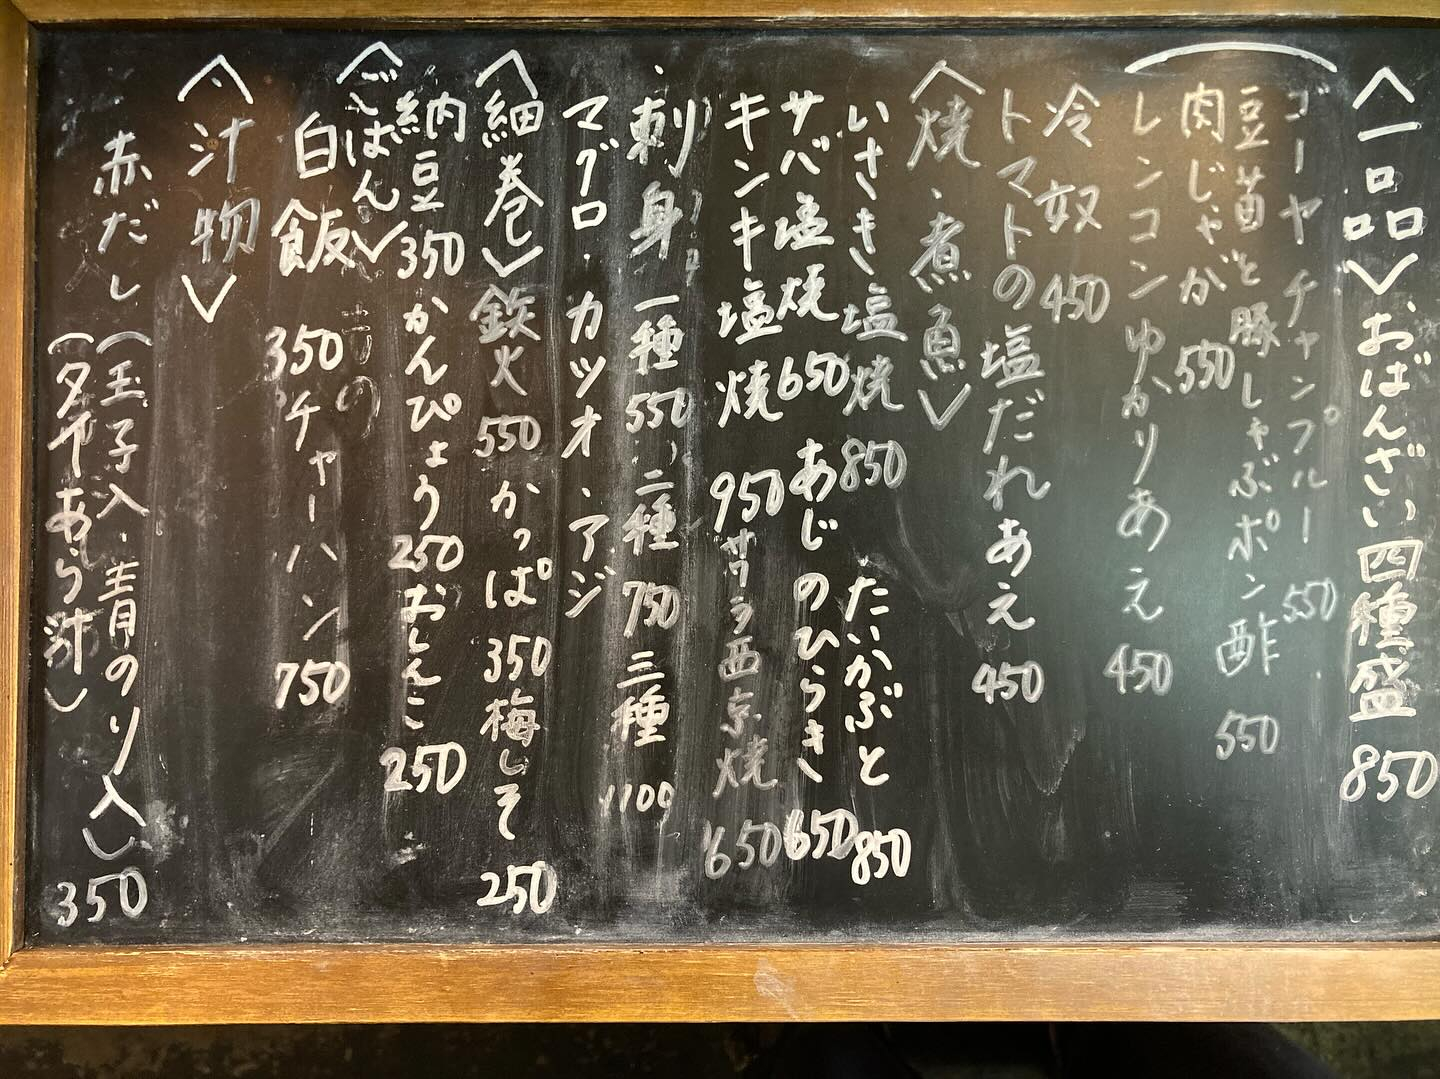 〈一品〉おばんざい四種盛 850
ゴーヤチャンプルー 550
豆苗と豚しゃぶポン酢 550
肉じゃが 550
レンコンゆかりあえ 450
冷奴 450
トマトの塩だれあえ 450
〈焼・煮魚〉
いさき塩焼 850 たいかぶと 850
サバ塩焼 650 あじのひらき 650
キンキ塩焼 950 サワラ西京焼 650
刺身 一種 550 二種 750 三種 1100
マグロ・カツオ・アジ
〈細巻〉鉄火 550 かっぱ 350 梅しそ 250
納豆 350 かんぴょう 250 おしんこ 250
〈ごはん〉
白飯 350 チャーハン 750
〈汁物〉
赤だし(玉子入・青のり入)
(タイあら汁) 350